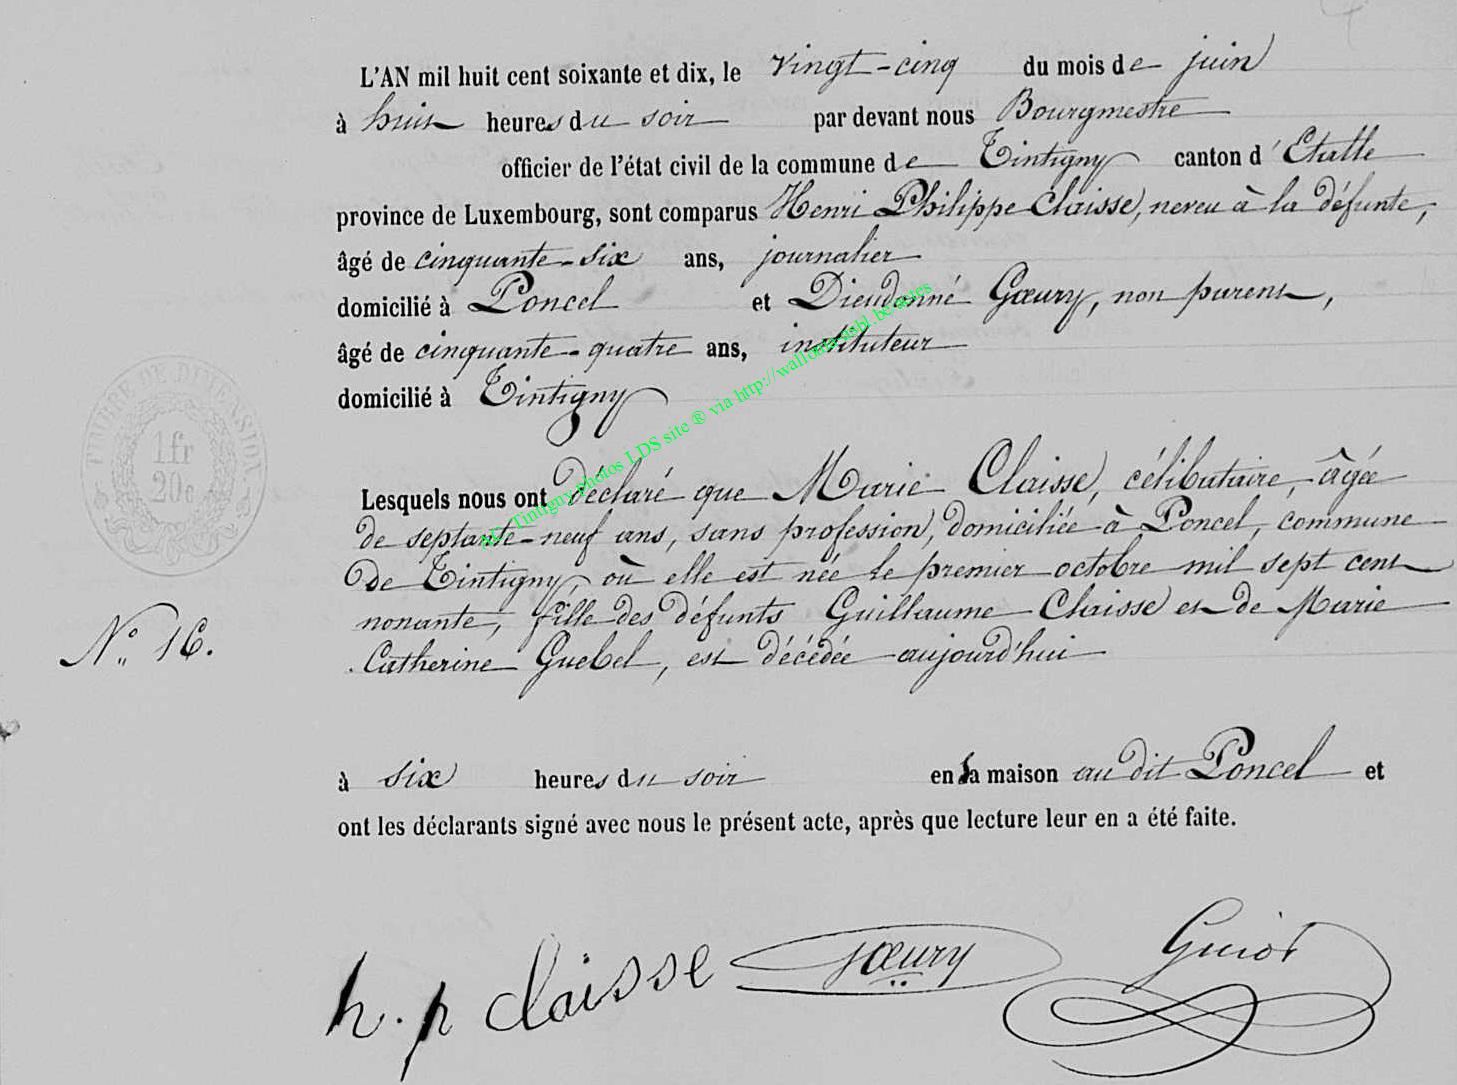 L'AN mil huit cent soixante et dix, le vingt-cinq du mois de juin
à huit heures du soir par devant nous Bourgmestre
officier de l'état civil de la commune de Tintigny canton d'Etalle
province de Luxembourg, sont comparus Henri Philippe Claisse, neveu à la défunte,
âgé de cinquante-six ans, journalier
domicilié à Poncel et Dieudonné Gœury, non parent,
âgé de cinquante-quatre ans, instituteur
domicilié à Tintigny
Lesquels nous ont déclaré que Marie Claisse, célibataire, âgée
de septante-neuf ans, sans profession, domiciliée à Poncel, commune
de Tintigny où elle est née le premier octobre mil sept cent
nonante, fille des défunts Guillaume Claisse et de Marie
Catherine Guebel, est décédée aujourd'hui
N° 16.
à six heures du soir en sa maison au dit Poncel et
ont les déclarants signé avec nous le présent acte, après que lecture leur en a été faite.
h. p claisse Gœury Guiot
TIMBRE DE DIMENSION
1 fr
20 c
Tintigny photos LDS site ® via http://wallonia-asbl.be/actes